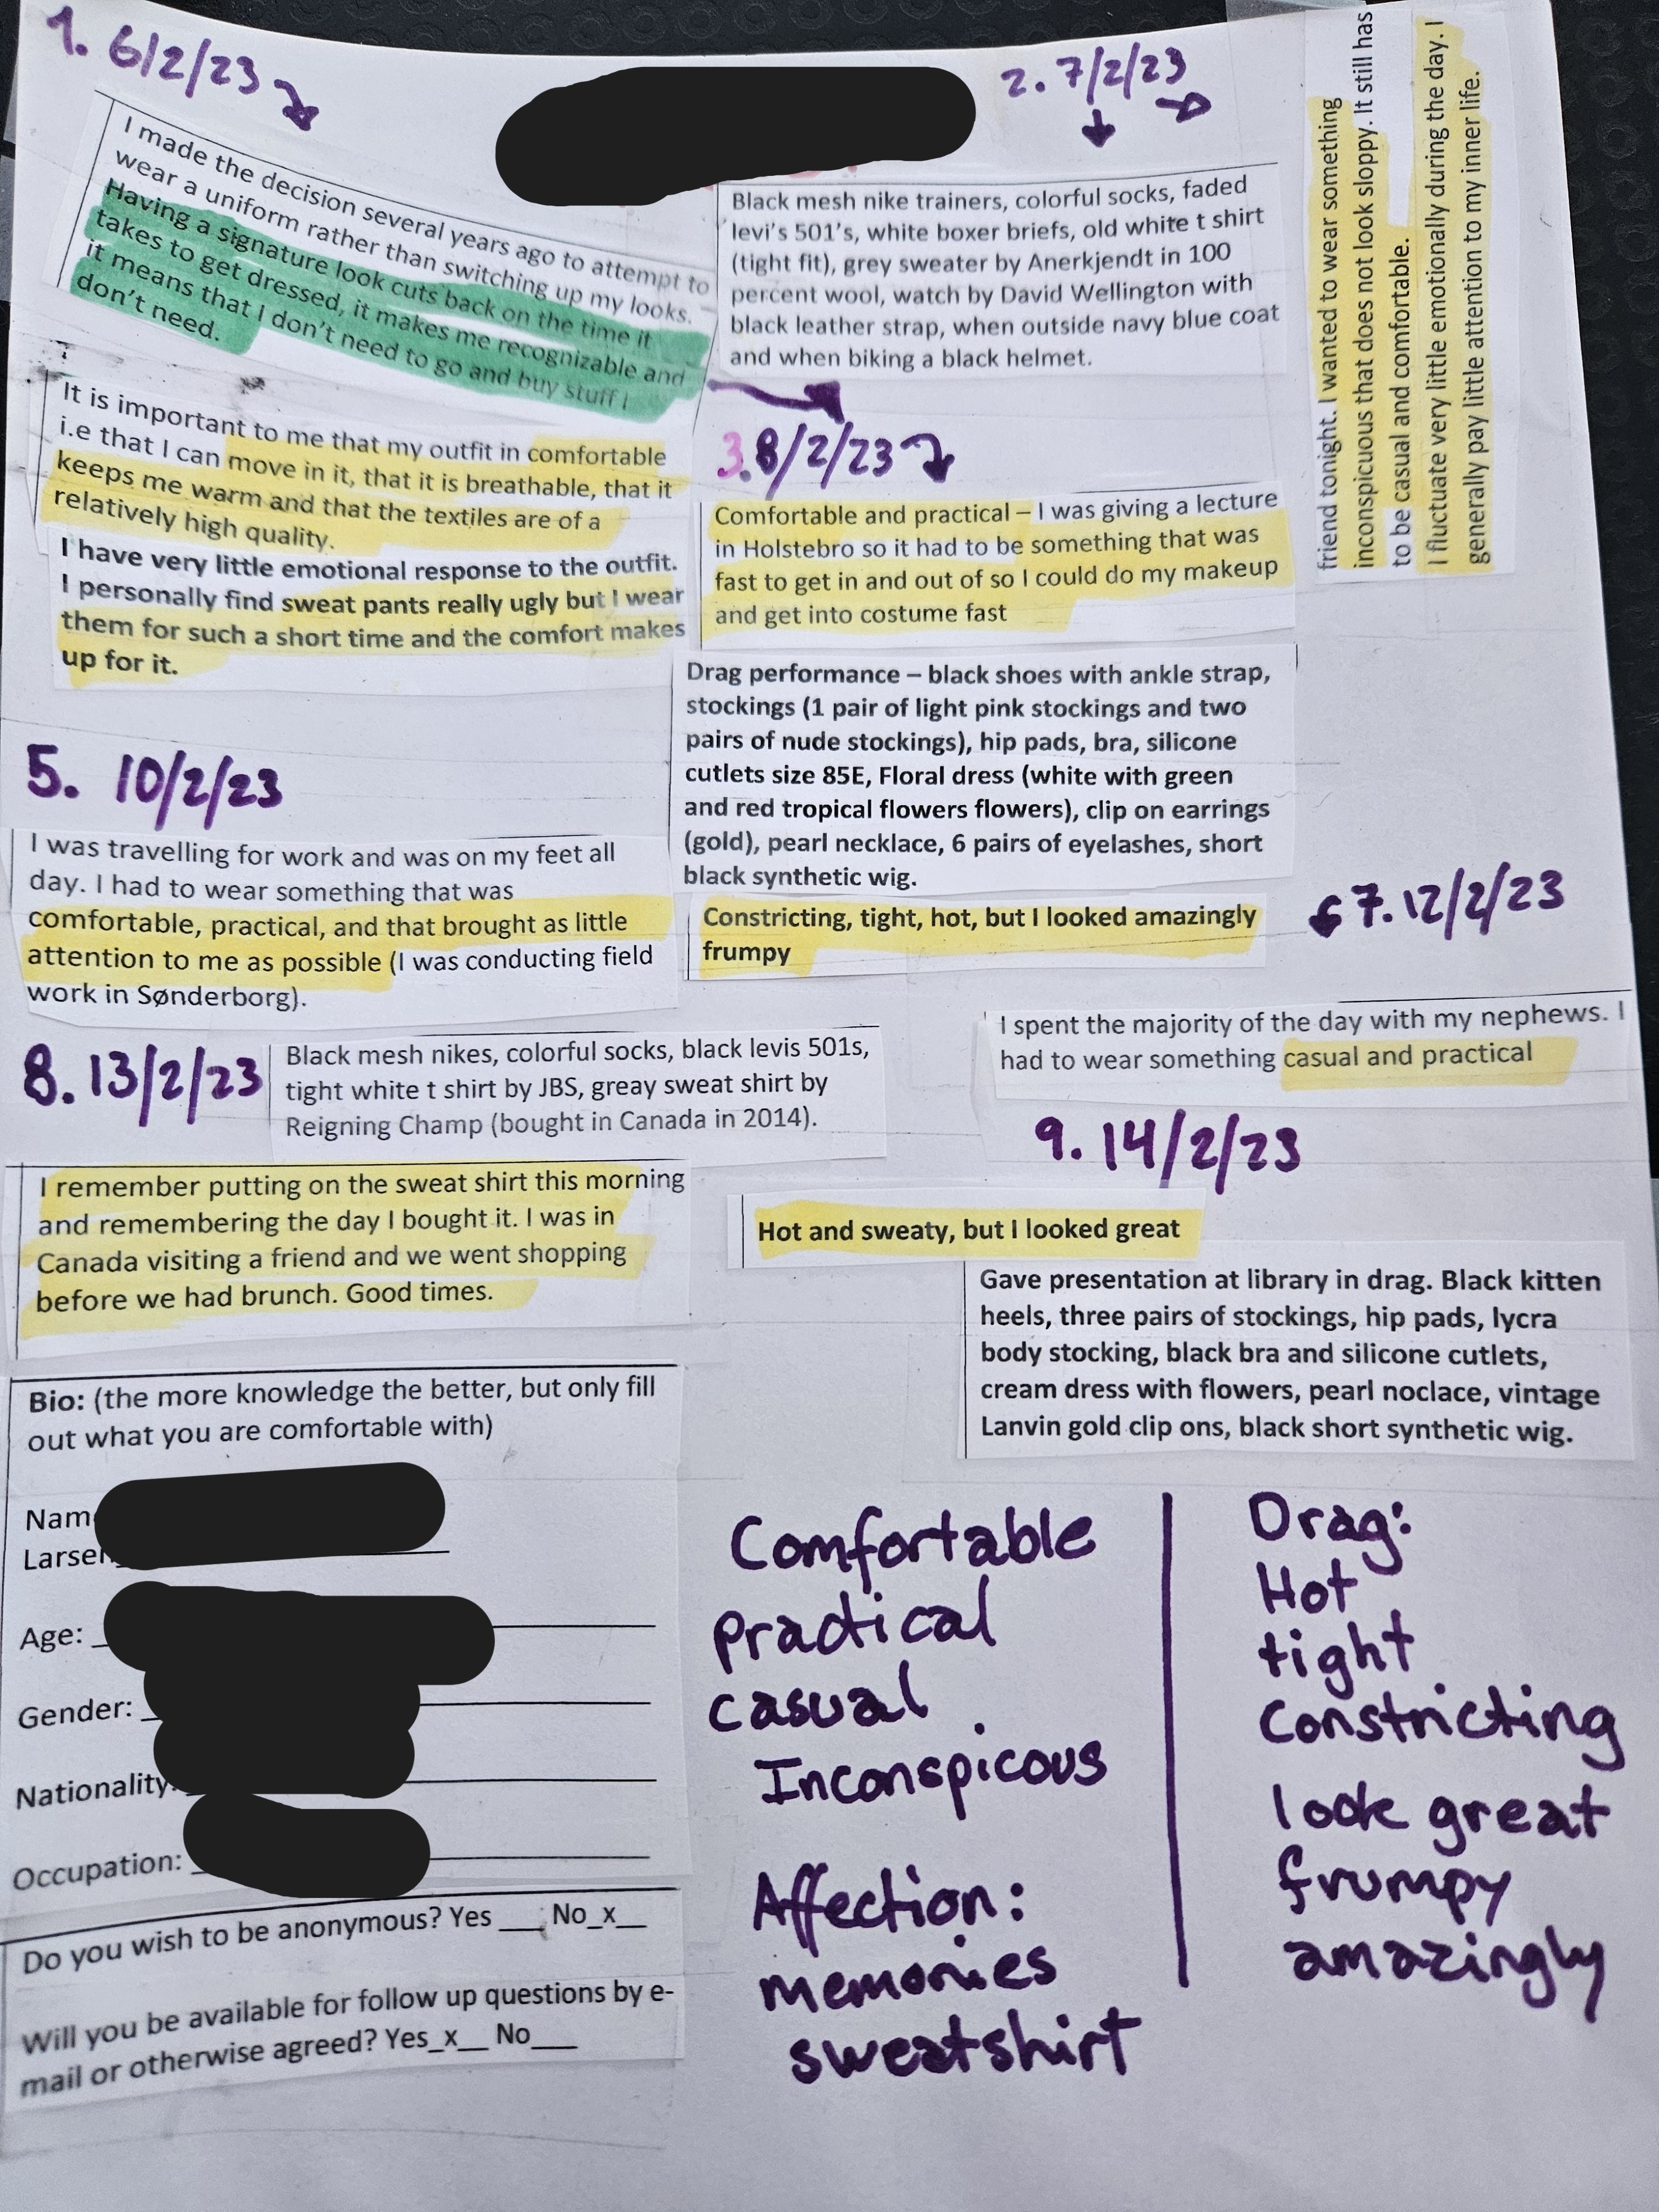 1. 6/2/23
I made the decision several years ago to attempt to
wear a uniform rather than switching up my looks.
Having a signature look cuts back on the time it
takes to get dressed, it makes me recognizable and
it means that I don't need to go and buy stuff I
don't need.
It is important to me that my outfit in comfortable
i.e that I can move in it, that it is breathable, that it
keeps me warm and that the textiles are of a
relatively high quality.
I have very little emotional response to the outfit.
I personally find sweat pants really ugly but I wear
them for such a short time and the comfort makes
up for it.
2. 7/2/23
Black mesh nike trainers, colorful socks, faded
levi's 501's, white boxer briefs, old white t shirt
(tight fit), grey sweater by Anerkjendt in 100
percent wool, watch by David Wellington with
black leather strap, when outside navy blue coat
and when biking a black helmet.
friend tonight. I wanted to wear something
inconspicuous that does not look sloppy. It still has
to be casual and comfortable.
I fluctuate very little emotionally during the day. I
generally pay little attention to my inner life.
3. 8/2/23
Comfortable and practical – I was giving a lecture
in Holstebro so it had to be something that was
fast to get in and out of so I could do my makeup
and get into costume fast
Drag performance – black shoes with ankle strap,
stockings (1 pair of light pink stockings and two
pairs of nude stockings), hip pads, bra, silicone
cutlets size 85E, Floral dress (white with green
and red tropical flowers flowers), clip on earrings
(gold), pearl necklace, 6 pairs of eyelashes, short
black synthetic wig.
Constricting, tight, hot, but I looked amazingly
frumpy
5. 10/2/23
I was travelling for work and was on my feet all
day. I had to wear something that was
comfortable, practical, and that brought as little
attention to me as possible (I was conducting field
work in Sønderborg).
7. 12/2/23
I spent the majority of the day with my nephews. I
had to wear something casual and practical
8. 13/2/23
Black mesh nikes, colorful socks, black levis 501s,
tight white t shirt by JBS, greay sweat shirt by
Reigning Champ (bought in Canada in 2014).
I remember putting on the sweat shirt this morning
and remembering the day I bought it. I was in
Canada visiting a friend and we went shopping
before we had brunch. Good times.
9. 14/2/23
Hot and sweaty, but I looked great
Gave presentation at library in drag. Black kitten
heels, three pairs of stockings, hip pads, lycra
body stocking, black bra and silicone cutlets,
cream dress with flowers, pearl noclace, vintage
Lanvin gold clip ons, black short synthetic wig.
Bio: (the more knowledge the better, but only fill
out what you are comfortable with)
Nam
Larsen
Age:
Gender:
Nationality:
Occupation:
Do you wish to be anonymous? Yes ___ No_x__
Will you be available for follow up questions by e-
mail or otherwise agreed? Yes_x__ No___
Comfortable
practical
casual
Inconspicous
Affection:
memories
sweatshirt
Drag:
Hot
tight
constricting
look great
frumpy
amazingly